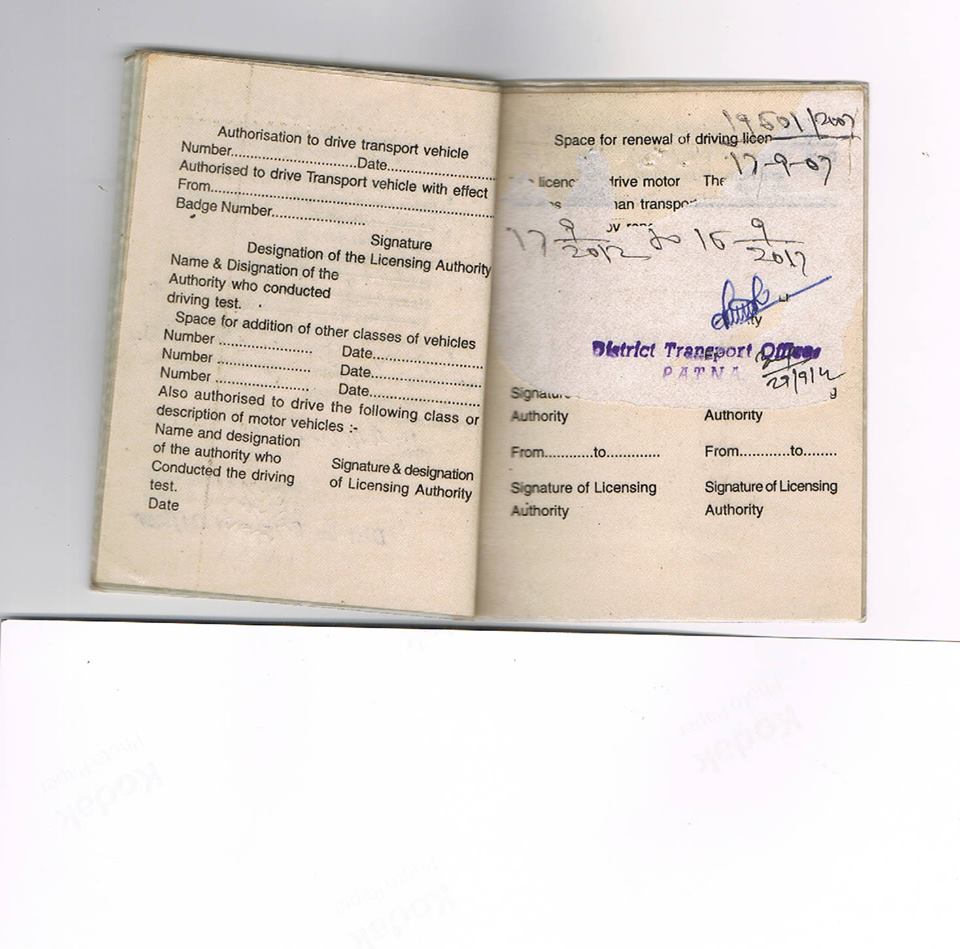 Authorisation to drive transport vehicle
Number..............................Date..........................
Authorised to drive Transport vehicle with effect
From......................................................................
Badge Number.......................
Signature
Designation of the Licensing Authority
Name & Disignation of the
Authority who conducted
driving test.
Space for addition of other classes of vehicles
Number ....................... Date...........................
Number ....................... Date...........................
Number ....................... Date...........................
Also authorised to drive the following class or
description of motor vehicles :-
Name and designation
of the authority who
Conducted the driving
test.
Signature & designation
of Licensing Authority
Date
19501/2007
Space for renewal of driving licen
17-9-07
licenc drive motor The
han transpor
17 9/2012 to 16 9/2017
District Transport Officer
PATNA
29/9/12
Signatu
Authority
Authority
From............to............. From............to........
Signature of Licensing
Authority
Signature of Licensing
Authority
Kodak
Kodak
Kodak